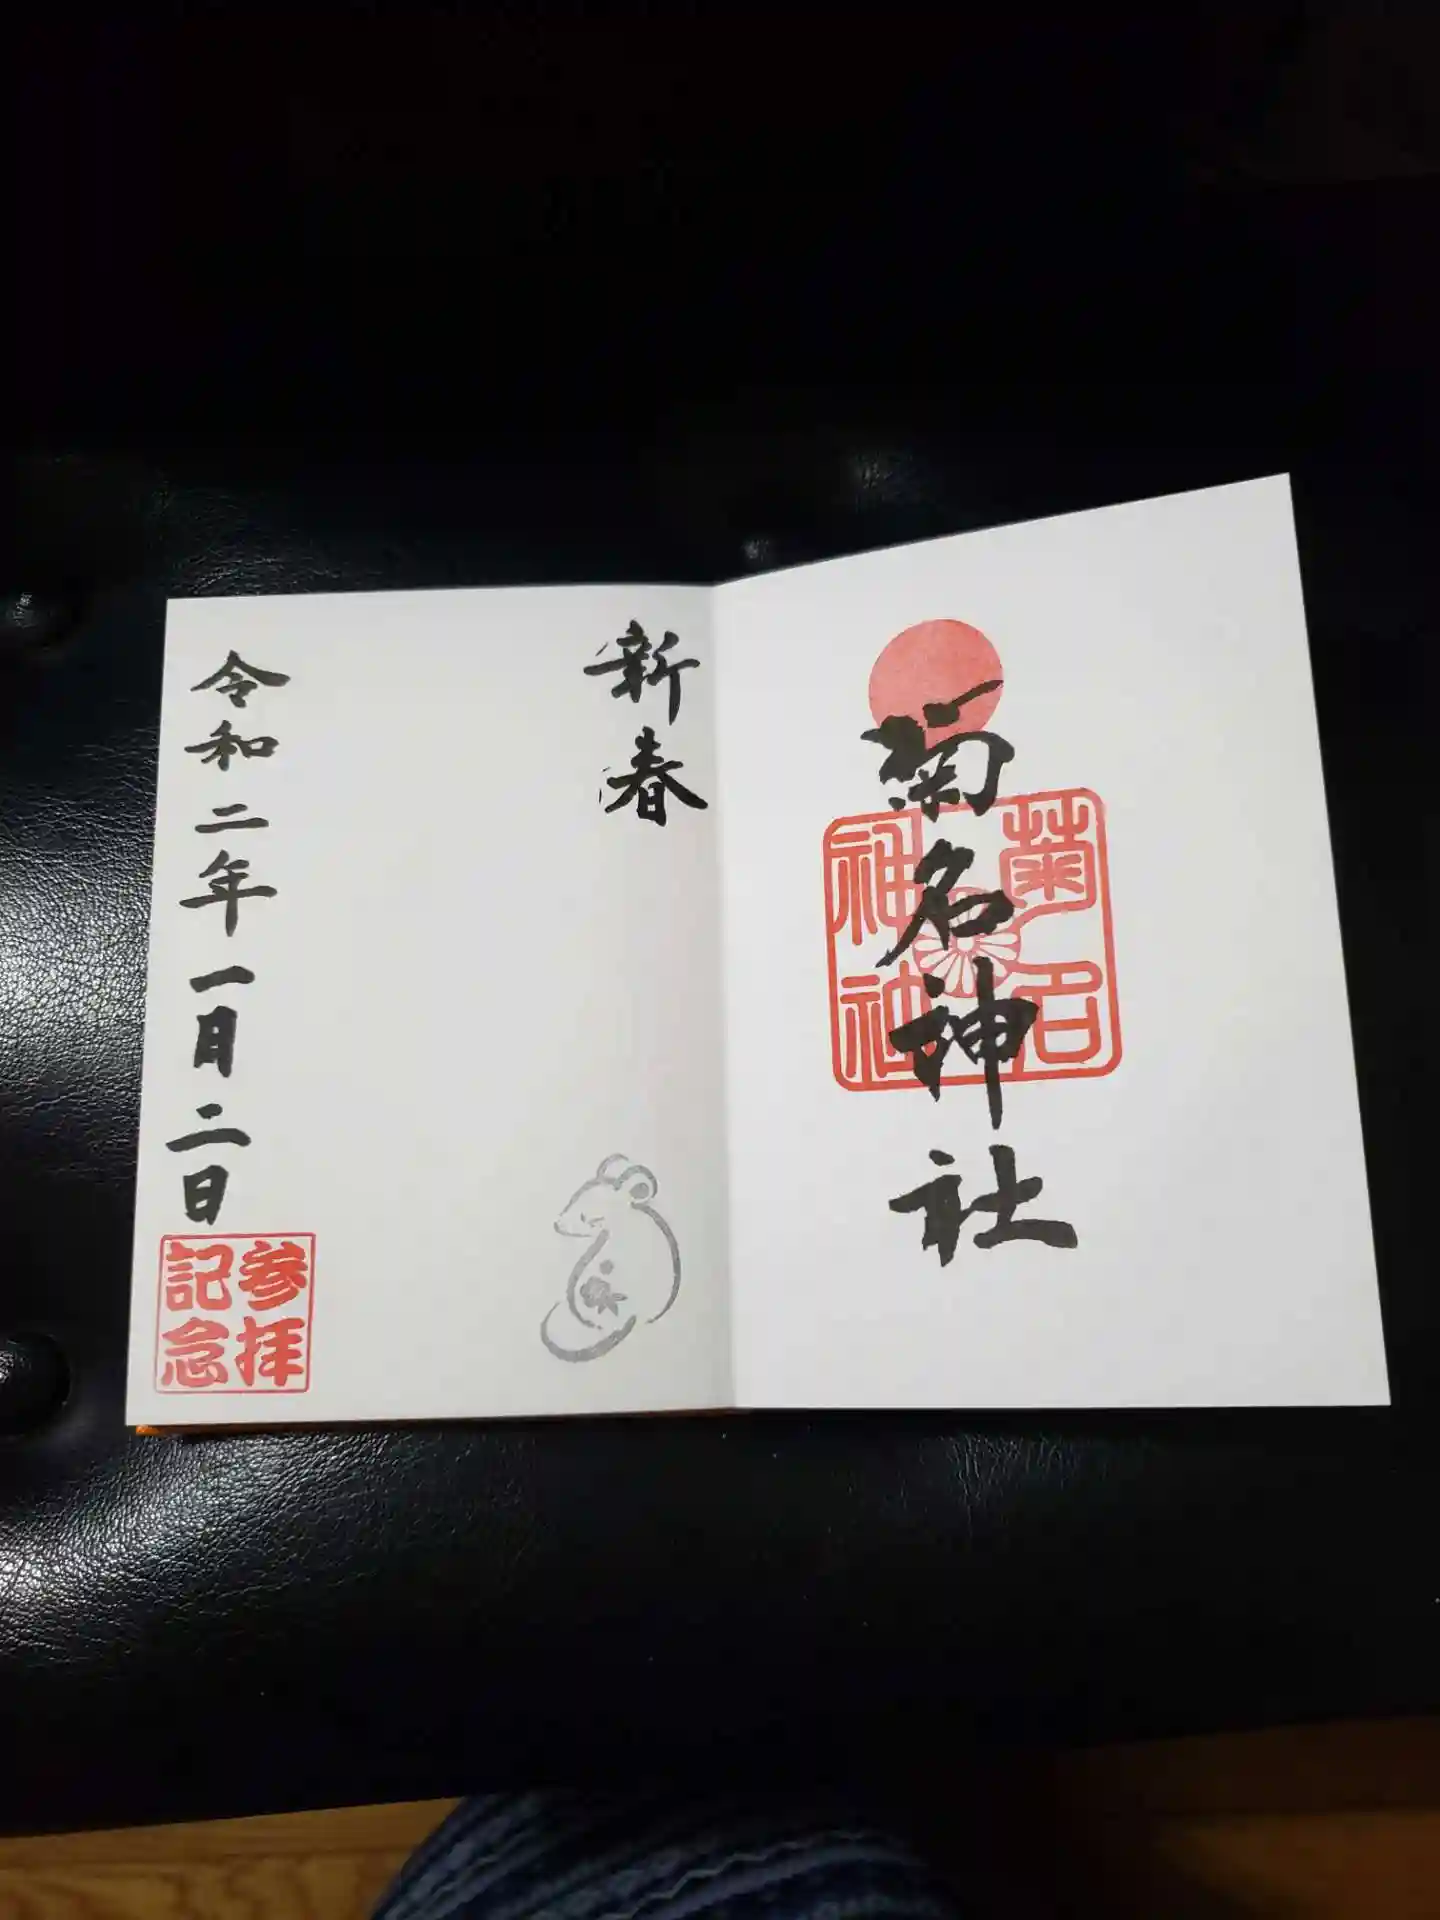 菊名神社
菊名
神社
新春
令和二年一月二日
参拝
記念